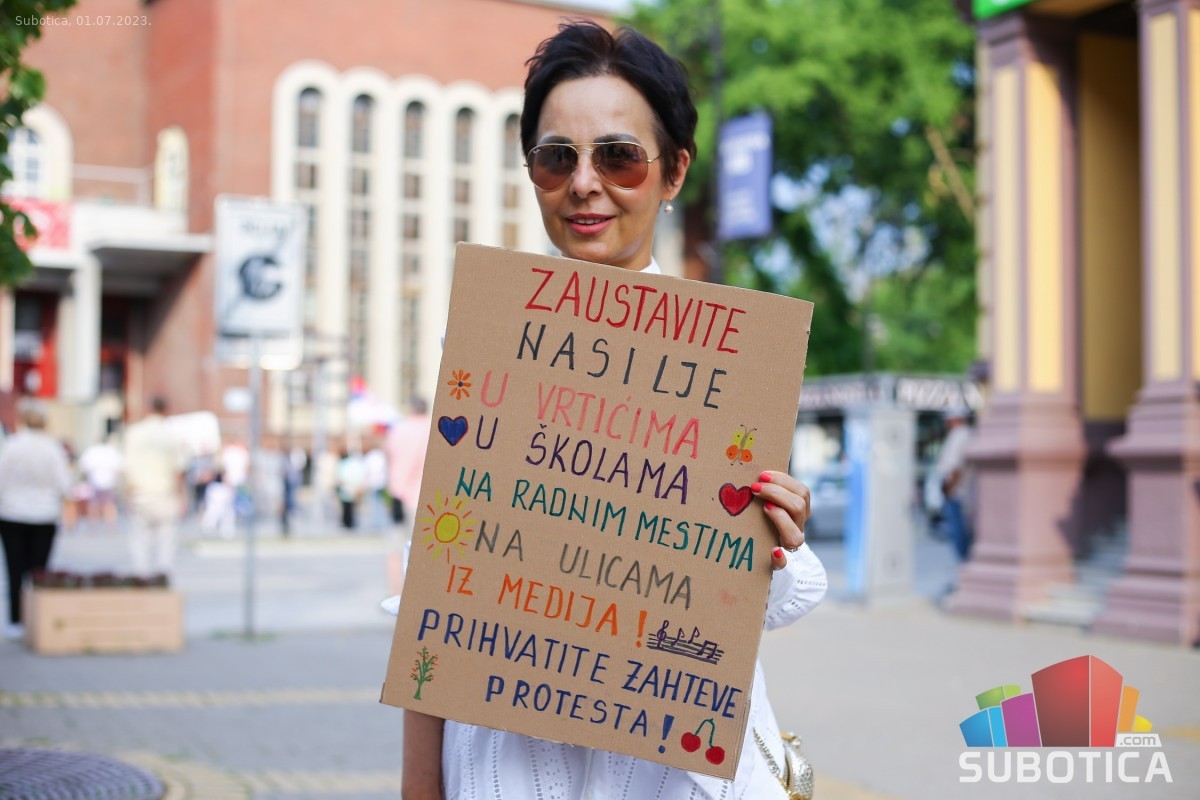 Subotica, 01.07.2023.
ZAUSTAVITE
NASILJE
U VRTIĆIMA
U ŠKOLAMA
NA RADNIM MESTIMA
NA ULICAMA
IZ MEDIJA!
PRIHVATITE ZAHTEVE
PROTESTA!
.com
SUBOTICA